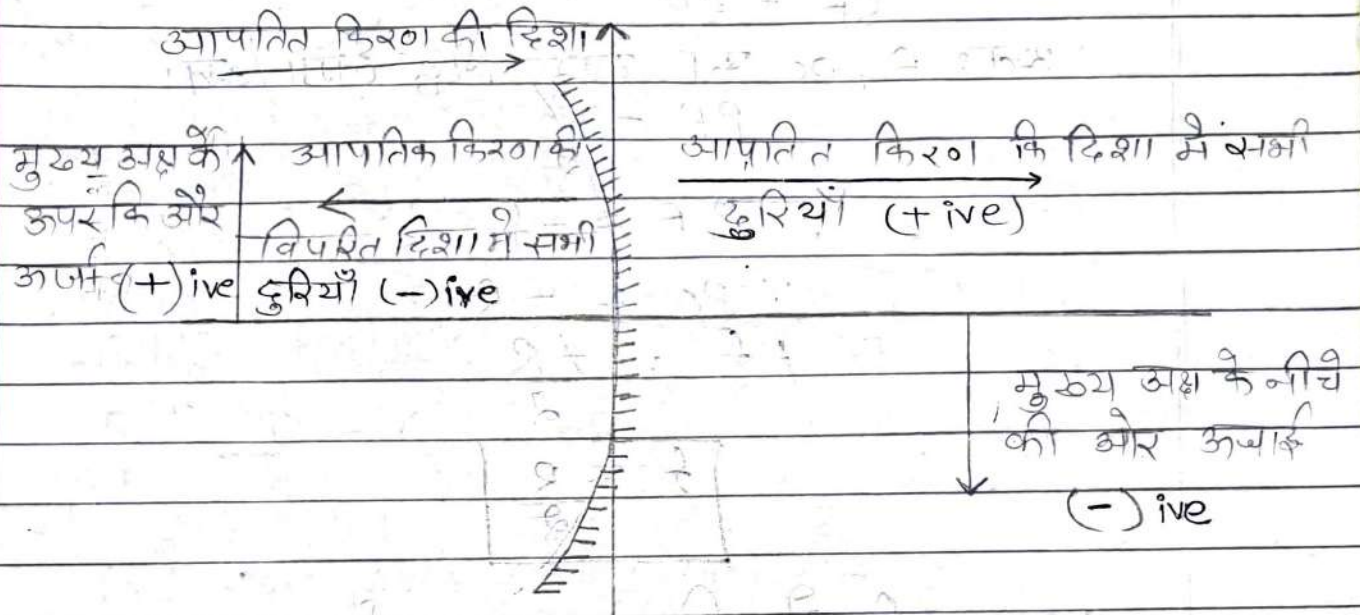 आपतित किरण की दिशा
मुख्य अक्ष के
ऊपर कि और
(+)ive
आपातिक किरण की
विपरित दिशा मे सभी
दुरियाँ (-)ive
आपतित किरण कि दिशा में सभी
दुरियाँ (+ive)
मुख्य अक्ष के नीचे
की ओर ऊचाई
(-) ive